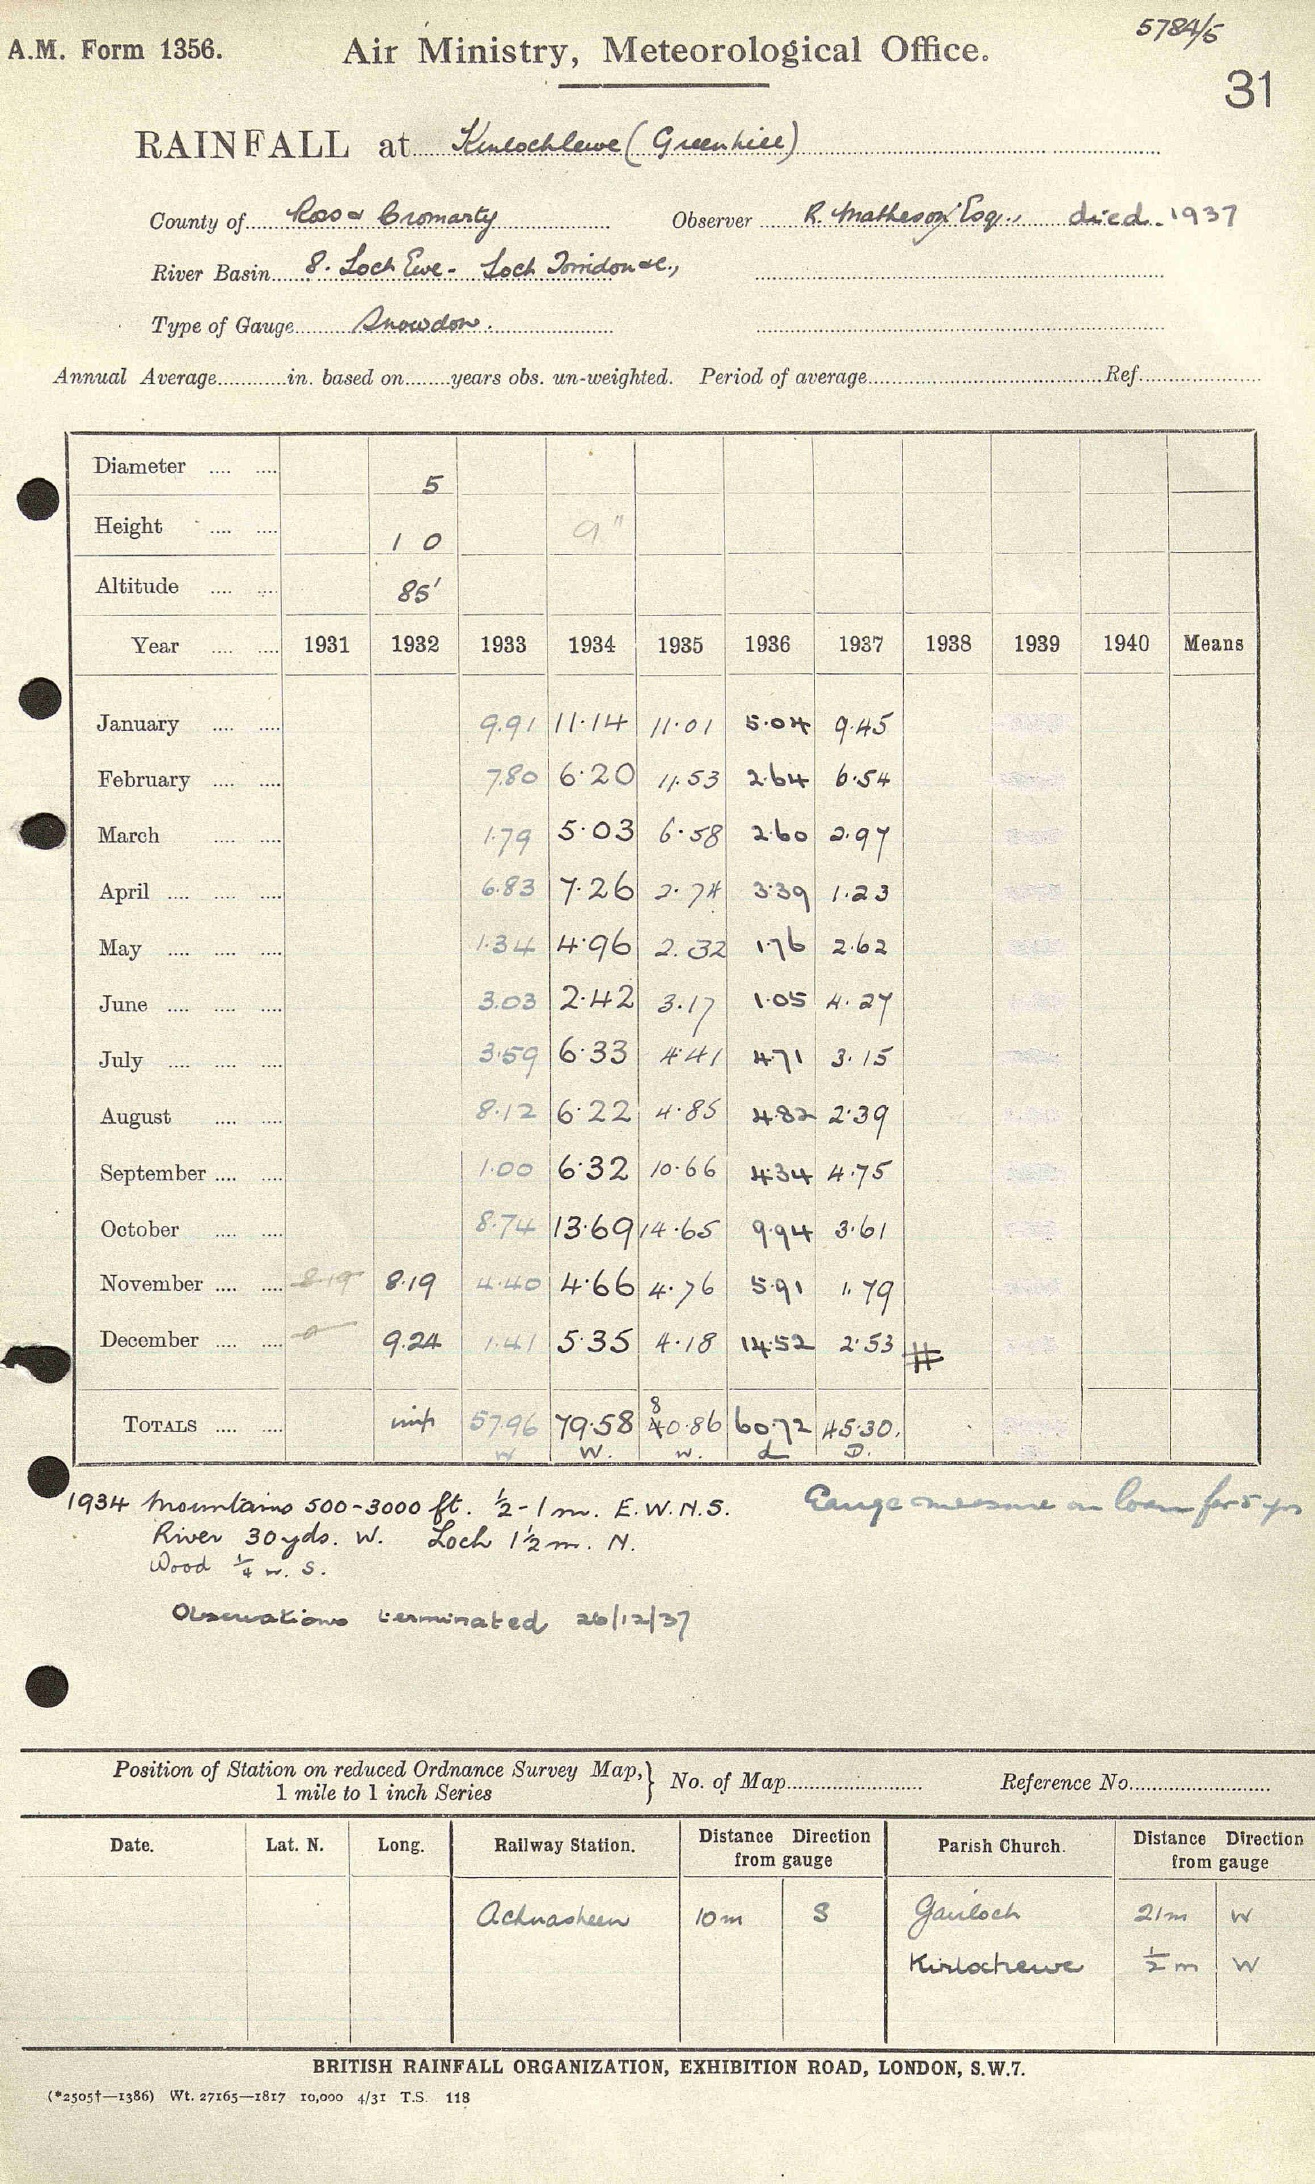 5784/5
A.M. Form 1356. Air Ministry, Meteorological Office.
31
RAINFALL at Kinlochlewe (Greenhill)
County of Ross & Cromarty Observer R. Matheson Esq., died 1937
River Basin 8. Loch Ewe - Loch Torridon &c.,
Type of Gauge Snowdon.
Annual Average in. based on years obs. un-weighted. Period of average Ref.
Diameter 5
Height 1 0 9"
Altitude 85'
Year 1931 1932 1933 1934 1935 1936 1937 1938 1939 1940 Means
January 9.91 11.14 11.01 5.04 9.45
February 7.80 6.20 11.53 2.64 6.54
March 1.79 5.03 6.58 2.60 2.97
April 6.83 7.26 2.74 3.39 1.23
May 1.34 4.96 2.32 1.76 2.62
June 3.03 2.42 3.17 1.05 4.27
July 3.59 6.33 4.41 4.71 3.15
August 8.12 6.22 4.85 4.82 2.39
September 1.00 6.32 10.66 4.34 4.75
October 8.74 13.69 14.65 9.94 3.61
November 8.19 8.19 4.40 4.66 4.76 5.91 1.79
December 9.24 1.41 5.35 4.18 14.52 2.53 #
8
TOTALS imp 57.96 79.58 40.86 60.72 45.30.
W W. W. L D.
1934 Mountains 500-3000 ft. 1/2-1 m. E.W.N.S. Gauge measure on loan for 5 yrs
River 30 yds. W. Loch 1 1/2 m. N.
Wood 1/4 m. S.
Observations terminated 26/12/37
Position of Station on reduced Ordnance Survey Map, } No. of Map Reference No.
1 mile to 1 inch Series
Date. Lat. N. Long. Railway Station. Distance Direction from gauge Parish Church. Distance Direction from gauge
Achnasheen 10m S Gairloch 21m W
Kinlochewe 1/2 m W
BRITISH RAINFALL ORGANIZATION, EXHIBITION ROAD, LONDON, S.W.7.
(*2505†—1386) Wt. 27165—1817 10,000 4/31 T.S. 118